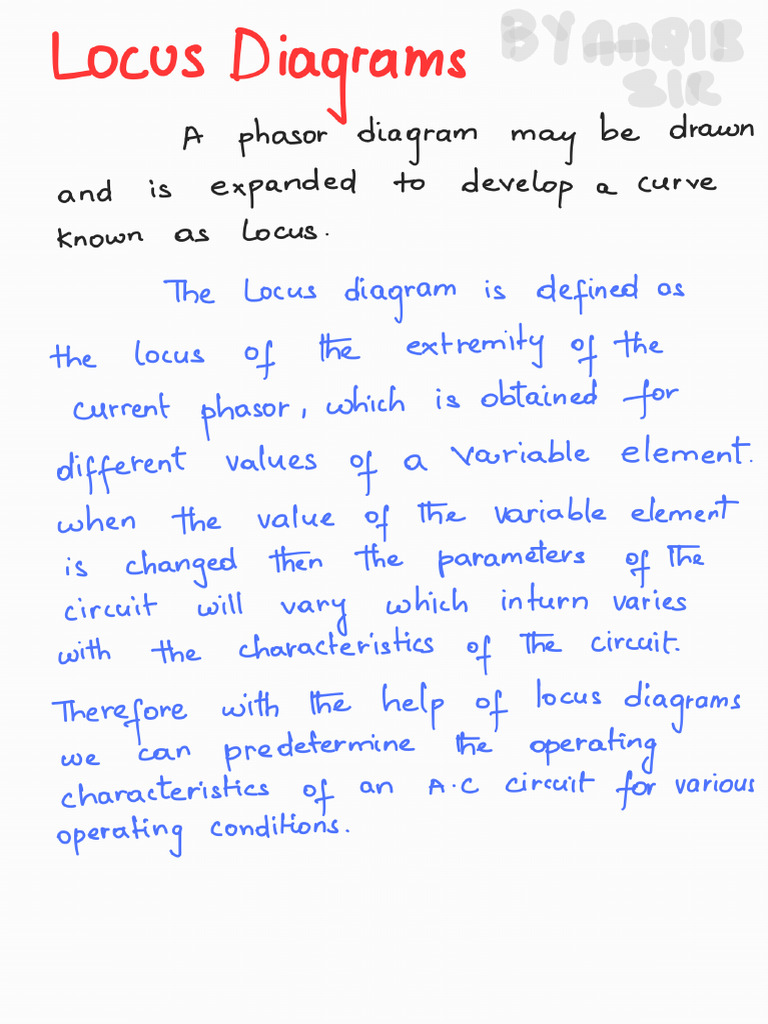 Locus Diagrams
BY
SIR
A phasor diagram may be drawn
and is expanded to develop a curve
known as Locus.
The Locus diagram is defined as
the locus of the extremity of the
current phasor, which is obtained for
different values of a variable element.
when the value of the variable element
is changed then the parameters of the
circuit will vary which inturn varies
with the characteristics of the circuit.
Therefore with the help of locus diagrams
we can predetermine the operating
characteristics of an A.C circuit for various
operating conditions.